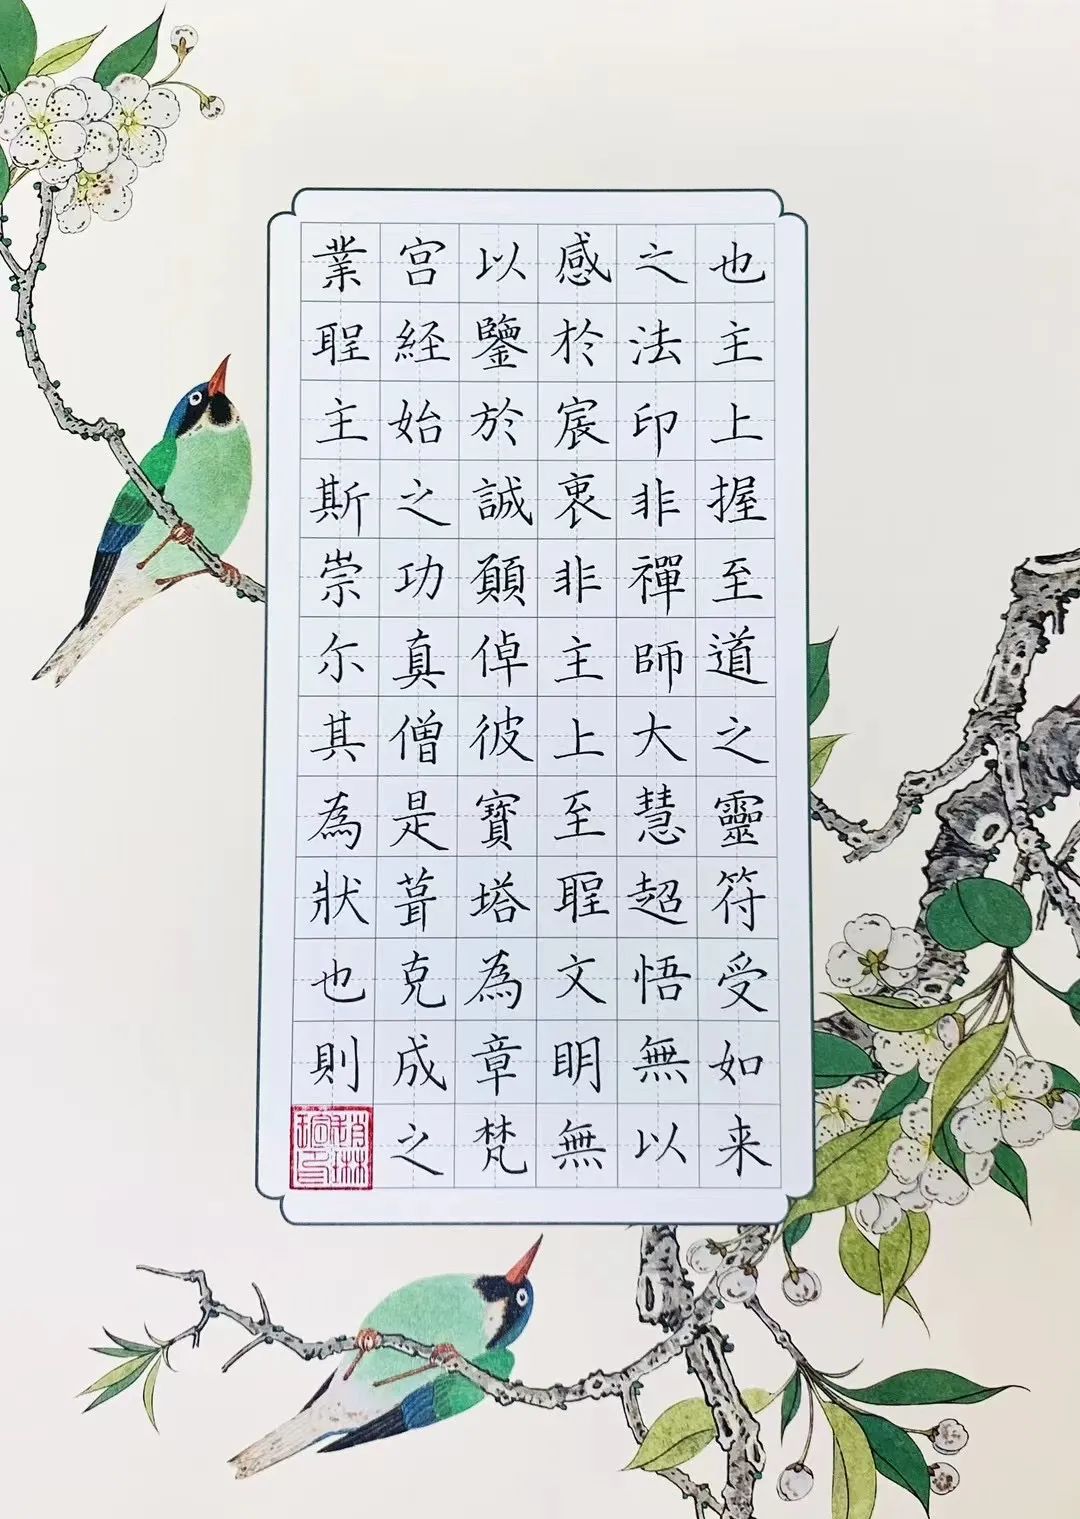 也主上握至道之靈符受如来
之法印非禪師大慧超悟無以
感於宸衷非主上至聖文明無
以鑒於誠願倬彼寶塔為章梵
宫経始之功真僧是葺克成之
業聖主斯崇尔其為狀也則